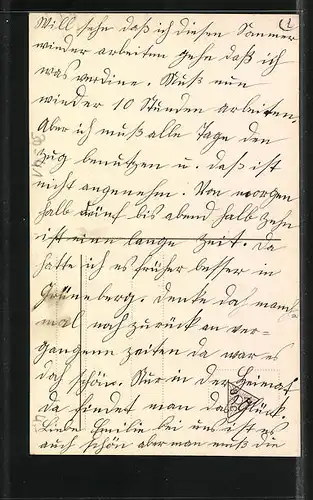 Will sehn daß ich diesen Sommer
wieder arbeiten gehe daß ich
was verdine. Muß nun
wieder 10 Stunden arbeiten.
Aber ich muß alle Tage den
Zug benutzen u. daß ist
nicht angenehm. Von morgen
halb fünf bis abend halb zehn
ist eine lange Zeit. Da
hatte ich es früher besser in
Grüneberg. Denke doch manch-
mal noch zurück an ver-
gangenn zeiten da war es
doch schön. Nur in der Heimat
da findet man das Glück
Liebe Emilie bei uns ist es
auch schön aber man muß die